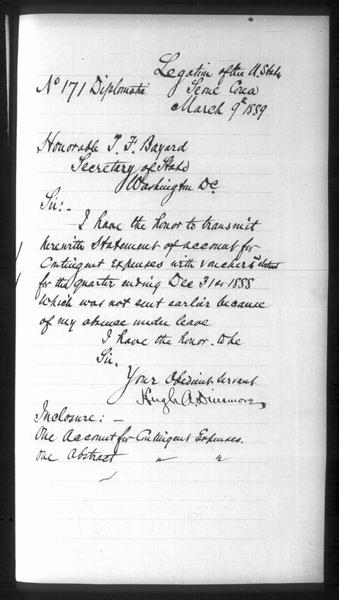 Legation of the U. States
No 171 Diplomatic Seoul Corea
March 9th 1889
Honorable T. F. Bayard
Secretary of State
Washington D.C.
Sir:-
I have the honor to transmit
herewith Statement of account for
Contingent Expenses with vouchers
for the quarter ending Dec 31st 1888
which was not sent earlier because
of my absence under leave
I have the honor to be
Sir,
Your Obedient Servant
Hugh A. Dinsmore
Inclosure:-
One Account for Contingent Expenses.
One Abstract " "